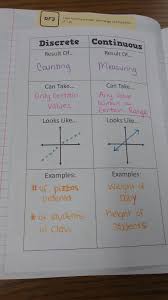 Discrete Continuous
Result Of... Result Of...
Counting Measuring
Can Take... Can Take...
Only Certain Any Value
Values Within a
Certain Range
Looks Like... Looks Like...
Examples: Examples:
# of pizzas Weight of
ordered Baby
# of students Height of
in class Students